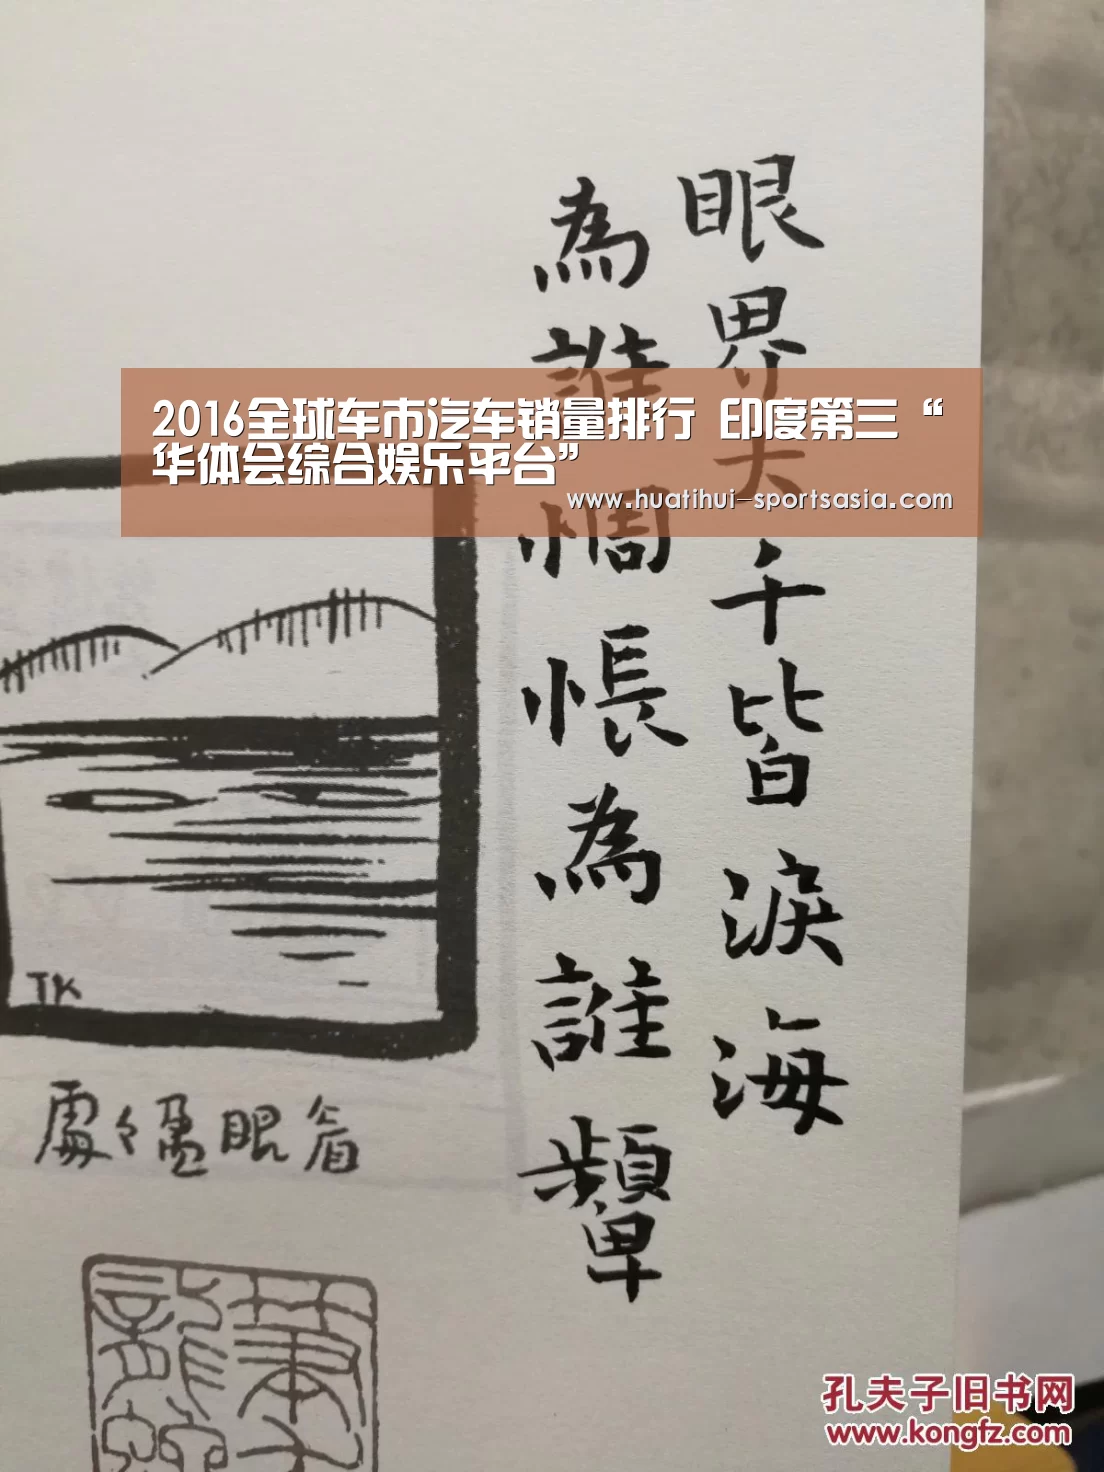 眼界大千皆淚海
為誰惆悵為誰顰
2016全球车市汽车销量排行 印度第三“
华体会综合娱乐平台”
www.huatihui-sportsasia.com
TK
眉眼盈々處
孔夫子旧书网
www.kongfz.com